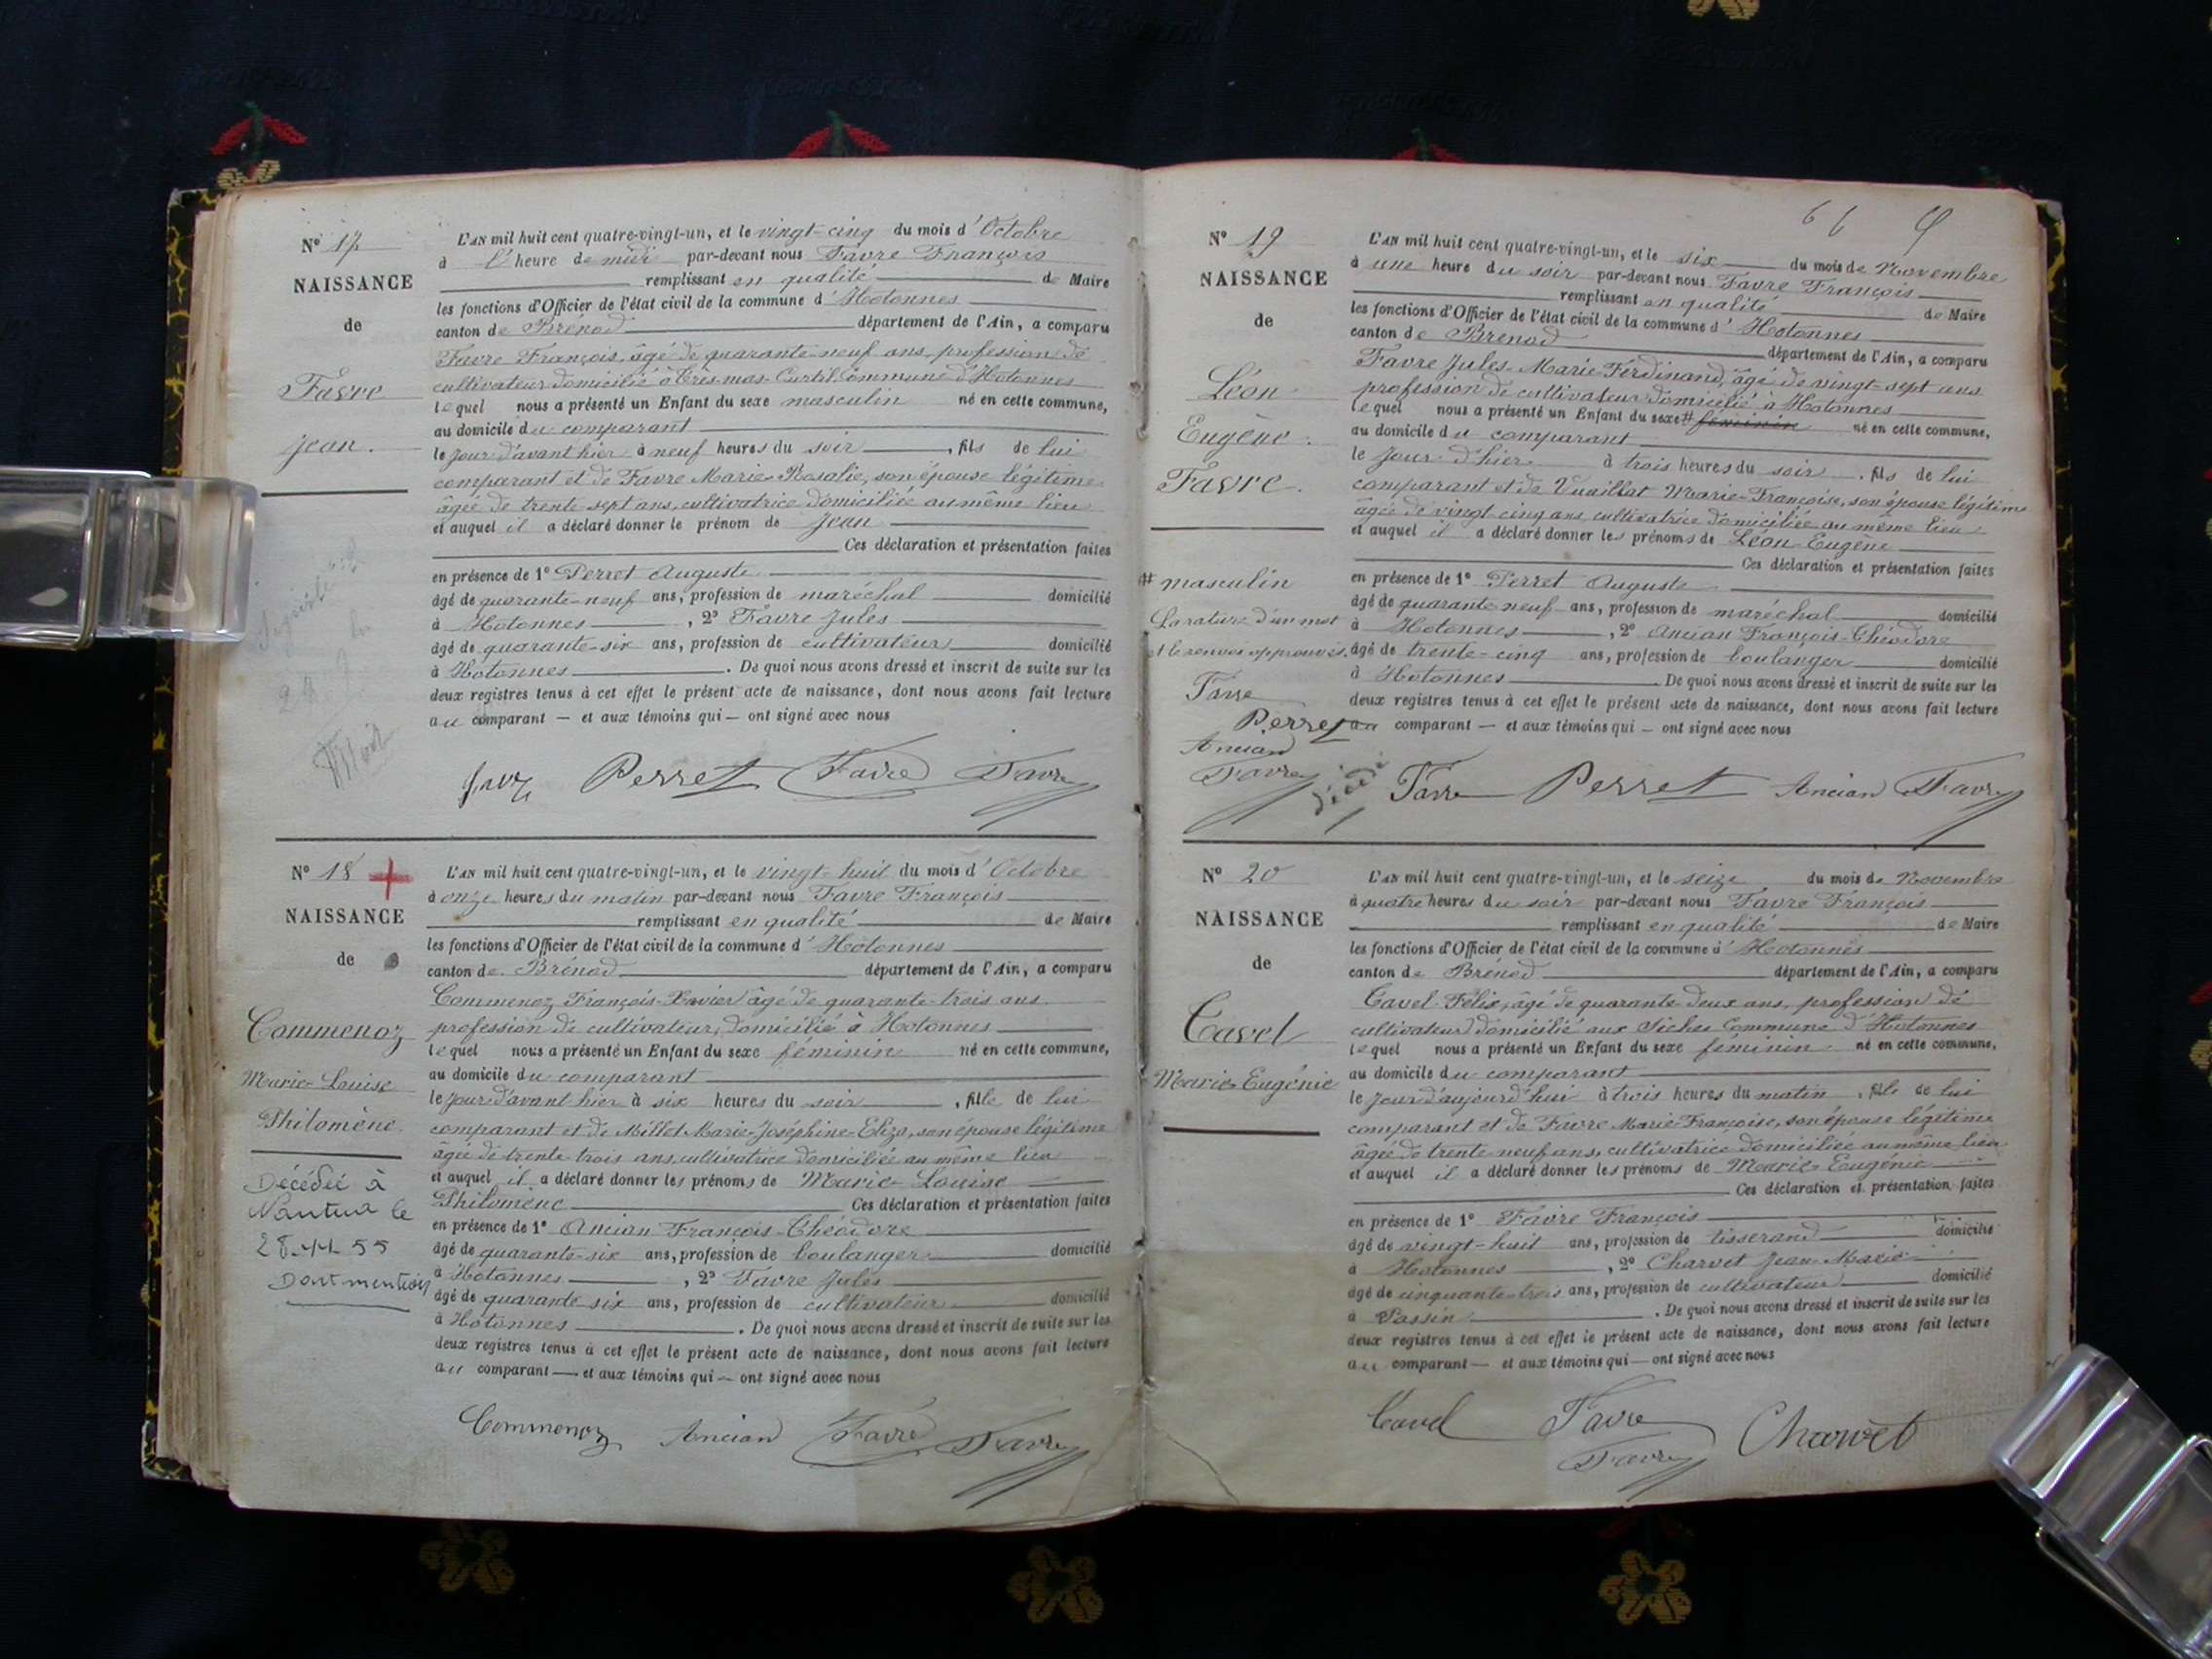 N° 17
NAISSANCE
de
Favre
Jean.
L'AN mil huit cent quatre-vingt-un, et le vingt-cinq du mois d'Octobre
à l'heure de midi par-devant nous Favre François
remplissant en qualité de Maire
les fonctions d'Officier de l'état civil de la commune d'Hotonnes
canton de Brénod département de l'Ain, a comparu
Favre François, âgé de quarante-neuf ans, profession de
cultivateur domicilié à Commune d'Hotonnes
lequel nous a présenté un Enfant du sexe masculin né en cette commune,
au domicile du comparant
le jour d'avant hier à neuf heures du soir, fils de lui
comparant et de Favre Marie-Rosalie, son épouse légitime
âgée de trente-sept ans, cultivatrice domiciliée au même lieu
et auquel il a déclaré donner le prénom de Jean
Ces déclaration et présentation faites
en présence de 1° Perret Auguste
âgé de quarante-neuf ans, profession de maréchal domicilié
à Hotonnes, 2° Favre Jules
âgé de quarante-six ans, profession de cultivateur domicilié
à Hotonnes. De quoi nous avons dressé et inscrit de suite sur les
deux registres tenus à cet effet le présent acte de naissance, dont nous avons fait lecture
au comparant — et aux témoins qui — ont signé avec nous
Perret Favre Favre
N° 18
NAISSANCE
de
Commenoz
Marie-Louise
Philomène.
Décédée à
Nantua le
28-11-55
Dont mention
L'AN mil huit cent quatre-vingt-un, et le vingt-huit du mois d'Octobre
à onze heures du matin par-devant nous Favre François
remplissant en qualité de Maire
les fonctions d'Officier de l'état civil de la commune d'Hotonnes
canton de Brénod département de l'Ain, a comparu
Commenoz François-Xavier âgé de quarante-trois ans
profession de cultivateur, domicilié à Hotonnes
lequel nous a présenté un Enfant du sexe féminin né en cette commune,
au domicile du comparant
le jour d'avant hier à six heures du soir, fille de lui
comparant et de Millet Marie-Joséphine-Eliza, son épouse légitime
âgée de trente-trois ans, cultivatrice domiciliée au même lieu
et auquel il a déclaré donner les prénoms de Marie-Louise
Philomène Ces déclaration et présentation faites
en présence de 1° Ancian François-Théodore
âgé de quarante-six ans, profession de boulanger domicilié
à Hotonnes, 2° Favre Jules
âgé de quarante-six ans, profession de cultivateur domicilié
à Hotonnes. De quoi nous avons dressé et inscrit de suite sur les
deux registres tenus à cet effet le présent acte de naissance, dont nous avons fait lecture
au comparant — et aux témoins qui — ont signé avec nous
Commenoz Ancian Favre Favre
66
N° 19
NAISSANCE
de
Léon
Eugène.
Favre.
# masculin
La rature d'un mot
et le renvoi approuvés.
Favre
Perret
Ancian
Favre
L'AN mil huit cent quatre-vingt-un, et le six du mois de Novembre
à une heure du soir par-devant nous Favre François
remplissant en qualité de Maire
les fonctions d'Officier de l'état civil de la commune d'Hotonnes
canton de Brenod département de l'Ain, a comparu
Favre Jules-Marie-Ferdinand, âgé de vingt-sept ans
profession de cultivateur domicilié à Hotonnes
lequel nous a présenté un Enfant du sexe # féminin né en cette commune,
au domicile du comparant
le jour d'hier à trois heures du soir, fils de lui
comparant et de Vuaillat Marie-Françoise, son épouse légitime
âgée de vingt-cinq ans, cultivatrice domiciliée au même lieu
et auquel il a déclaré donner les prénoms de Léon Eugène
Ces déclaration et présentation faites
en présence de 1° Perret Auguste
âgé de quarante-neuf ans, profession de maréchal domicilié
à Hotonnes, 2° Ancian François-Théodore
âgé de trente-cinq ans, profession de boulanger domicilié
à Hotonnes. De quoi nous avons dressé et inscrit de suite sur les
deux registres tenus à cet effet le présent acte de naissance, dont nous avons fait lecture
au comparant — et aux témoins qui — ont signé avec nous
Favre Perret Ancian Favre
N° 20
NAISSANCE
de
Cavel
Marie-Eugénie
L'AN mil huit cent quatre-vingt-un, et le seize du mois de Novembre
à quatre heures du soir par-devant nous Favre François
remplissant en qualité de Maire
les fonctions d'Officier de l'état civil de la commune d'Hotonnes
canton de Brénod département de l'Ain, a comparu
Cavel Félix, âgé de quarante-deux ans, profession de
cultivateur domicilié aux Sèches Commune d'Hotonnes
lequel nous a présenté un Enfant du sexe féminin né en cette commune,
au domicile du comparant
le jour d'aujourd'hui à trois heures du matin, fille de lui
comparant et de Favre Marie-Françoise, son épouse légitime
âgée de trente-neuf ans, cultivatrice domiciliée au même lieu
et auquel il a déclaré donner les prénoms de Marie-Eugénie
Ces déclaration et présentation faites
en présence de 1° Favre François
âgé de vingt-huit ans, profession de tisserand domicilié
à Hotonnes, 2° Charvet Jean-Marie
âgé de cinquante-trois ans, profession de cultivateur domicilié
à Passin. De quoi nous avons dressé et inscrit de suite sur les
deux registres tenus à cet effet le présent acte de naissance, dont nous avons fait lecture
au comparant — et aux témoins qui — ont signé avec nous
Cavel Favre Charvet
Favre